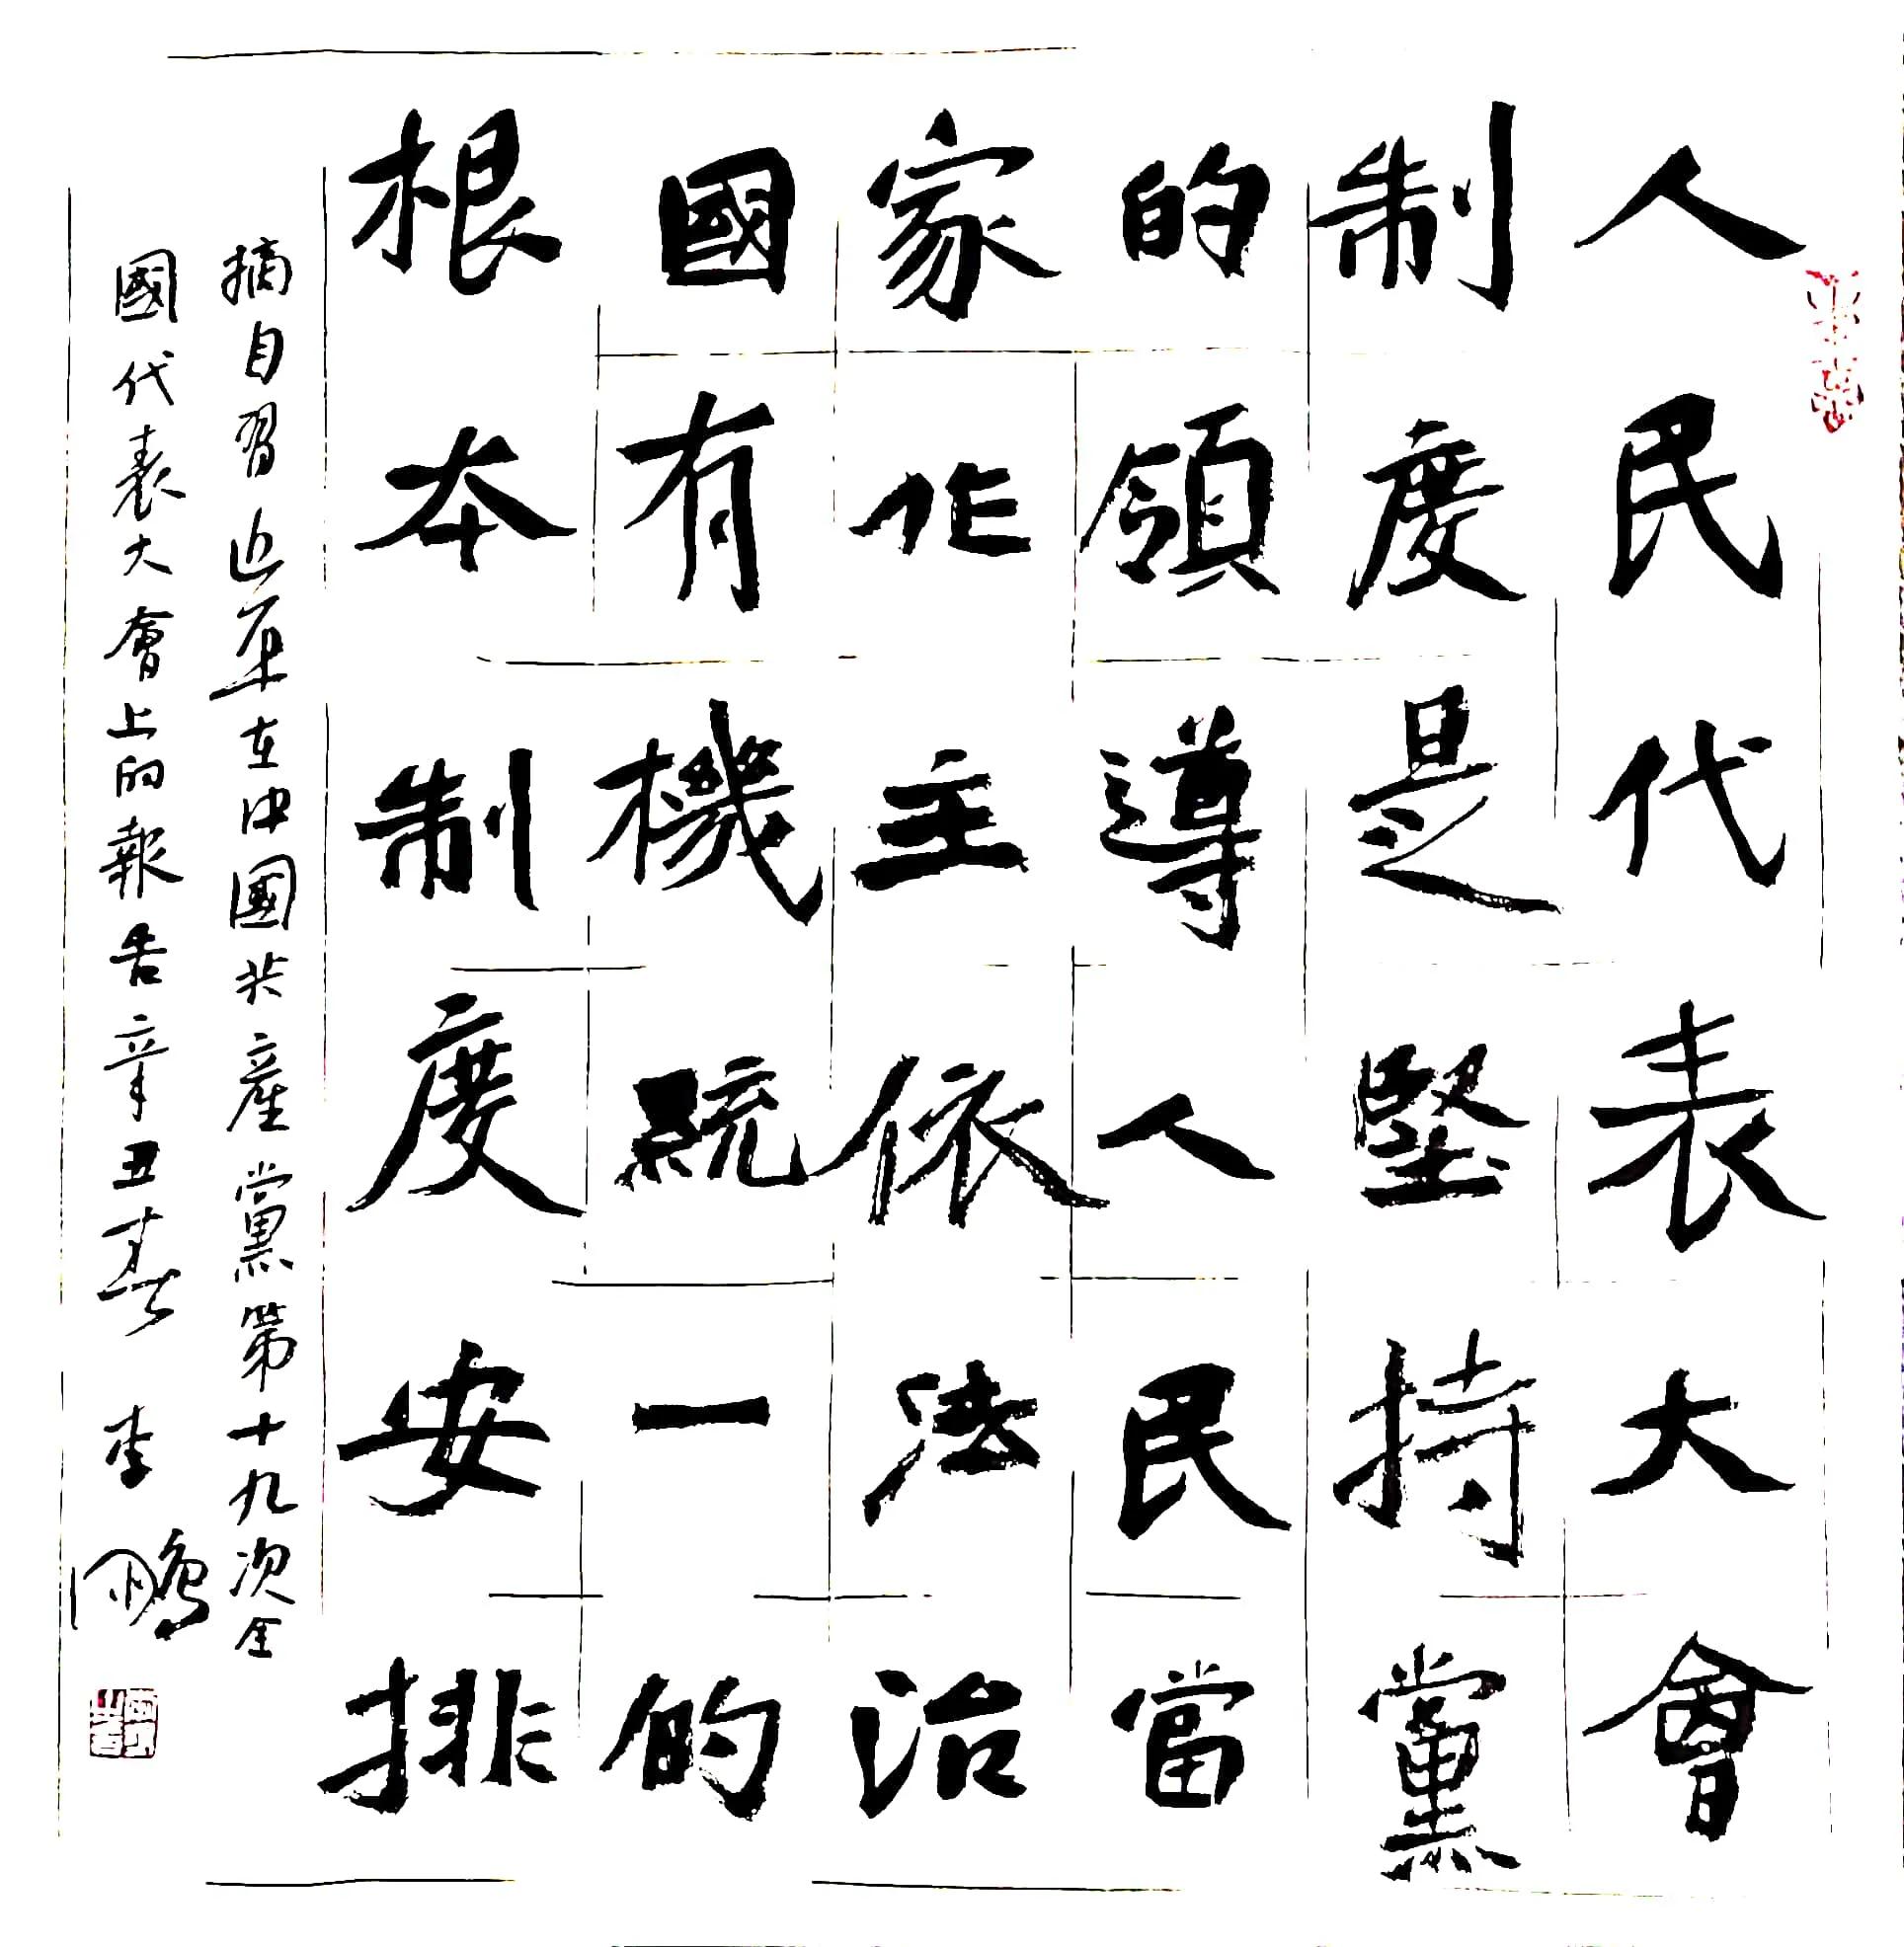 人民代表大會
制度是堅持黨
的領導人民當
家作主依法治
國有機統一的
根本制度安排
摘自習近平在中國共產黨第十九次全
國代表大會上的報告辛丑春李鵬